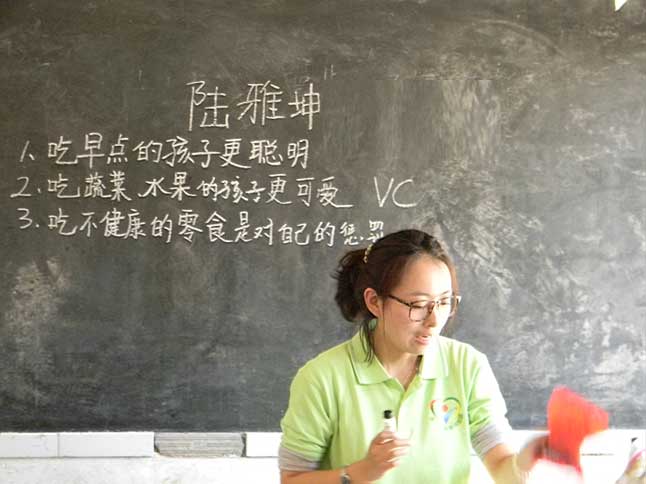 陆雅坤
1、吃早点的孩子更聪明
2、吃蔬菜、水果的孩子更可爱 VC
3、吃不健康的零食是对自己的惩罚